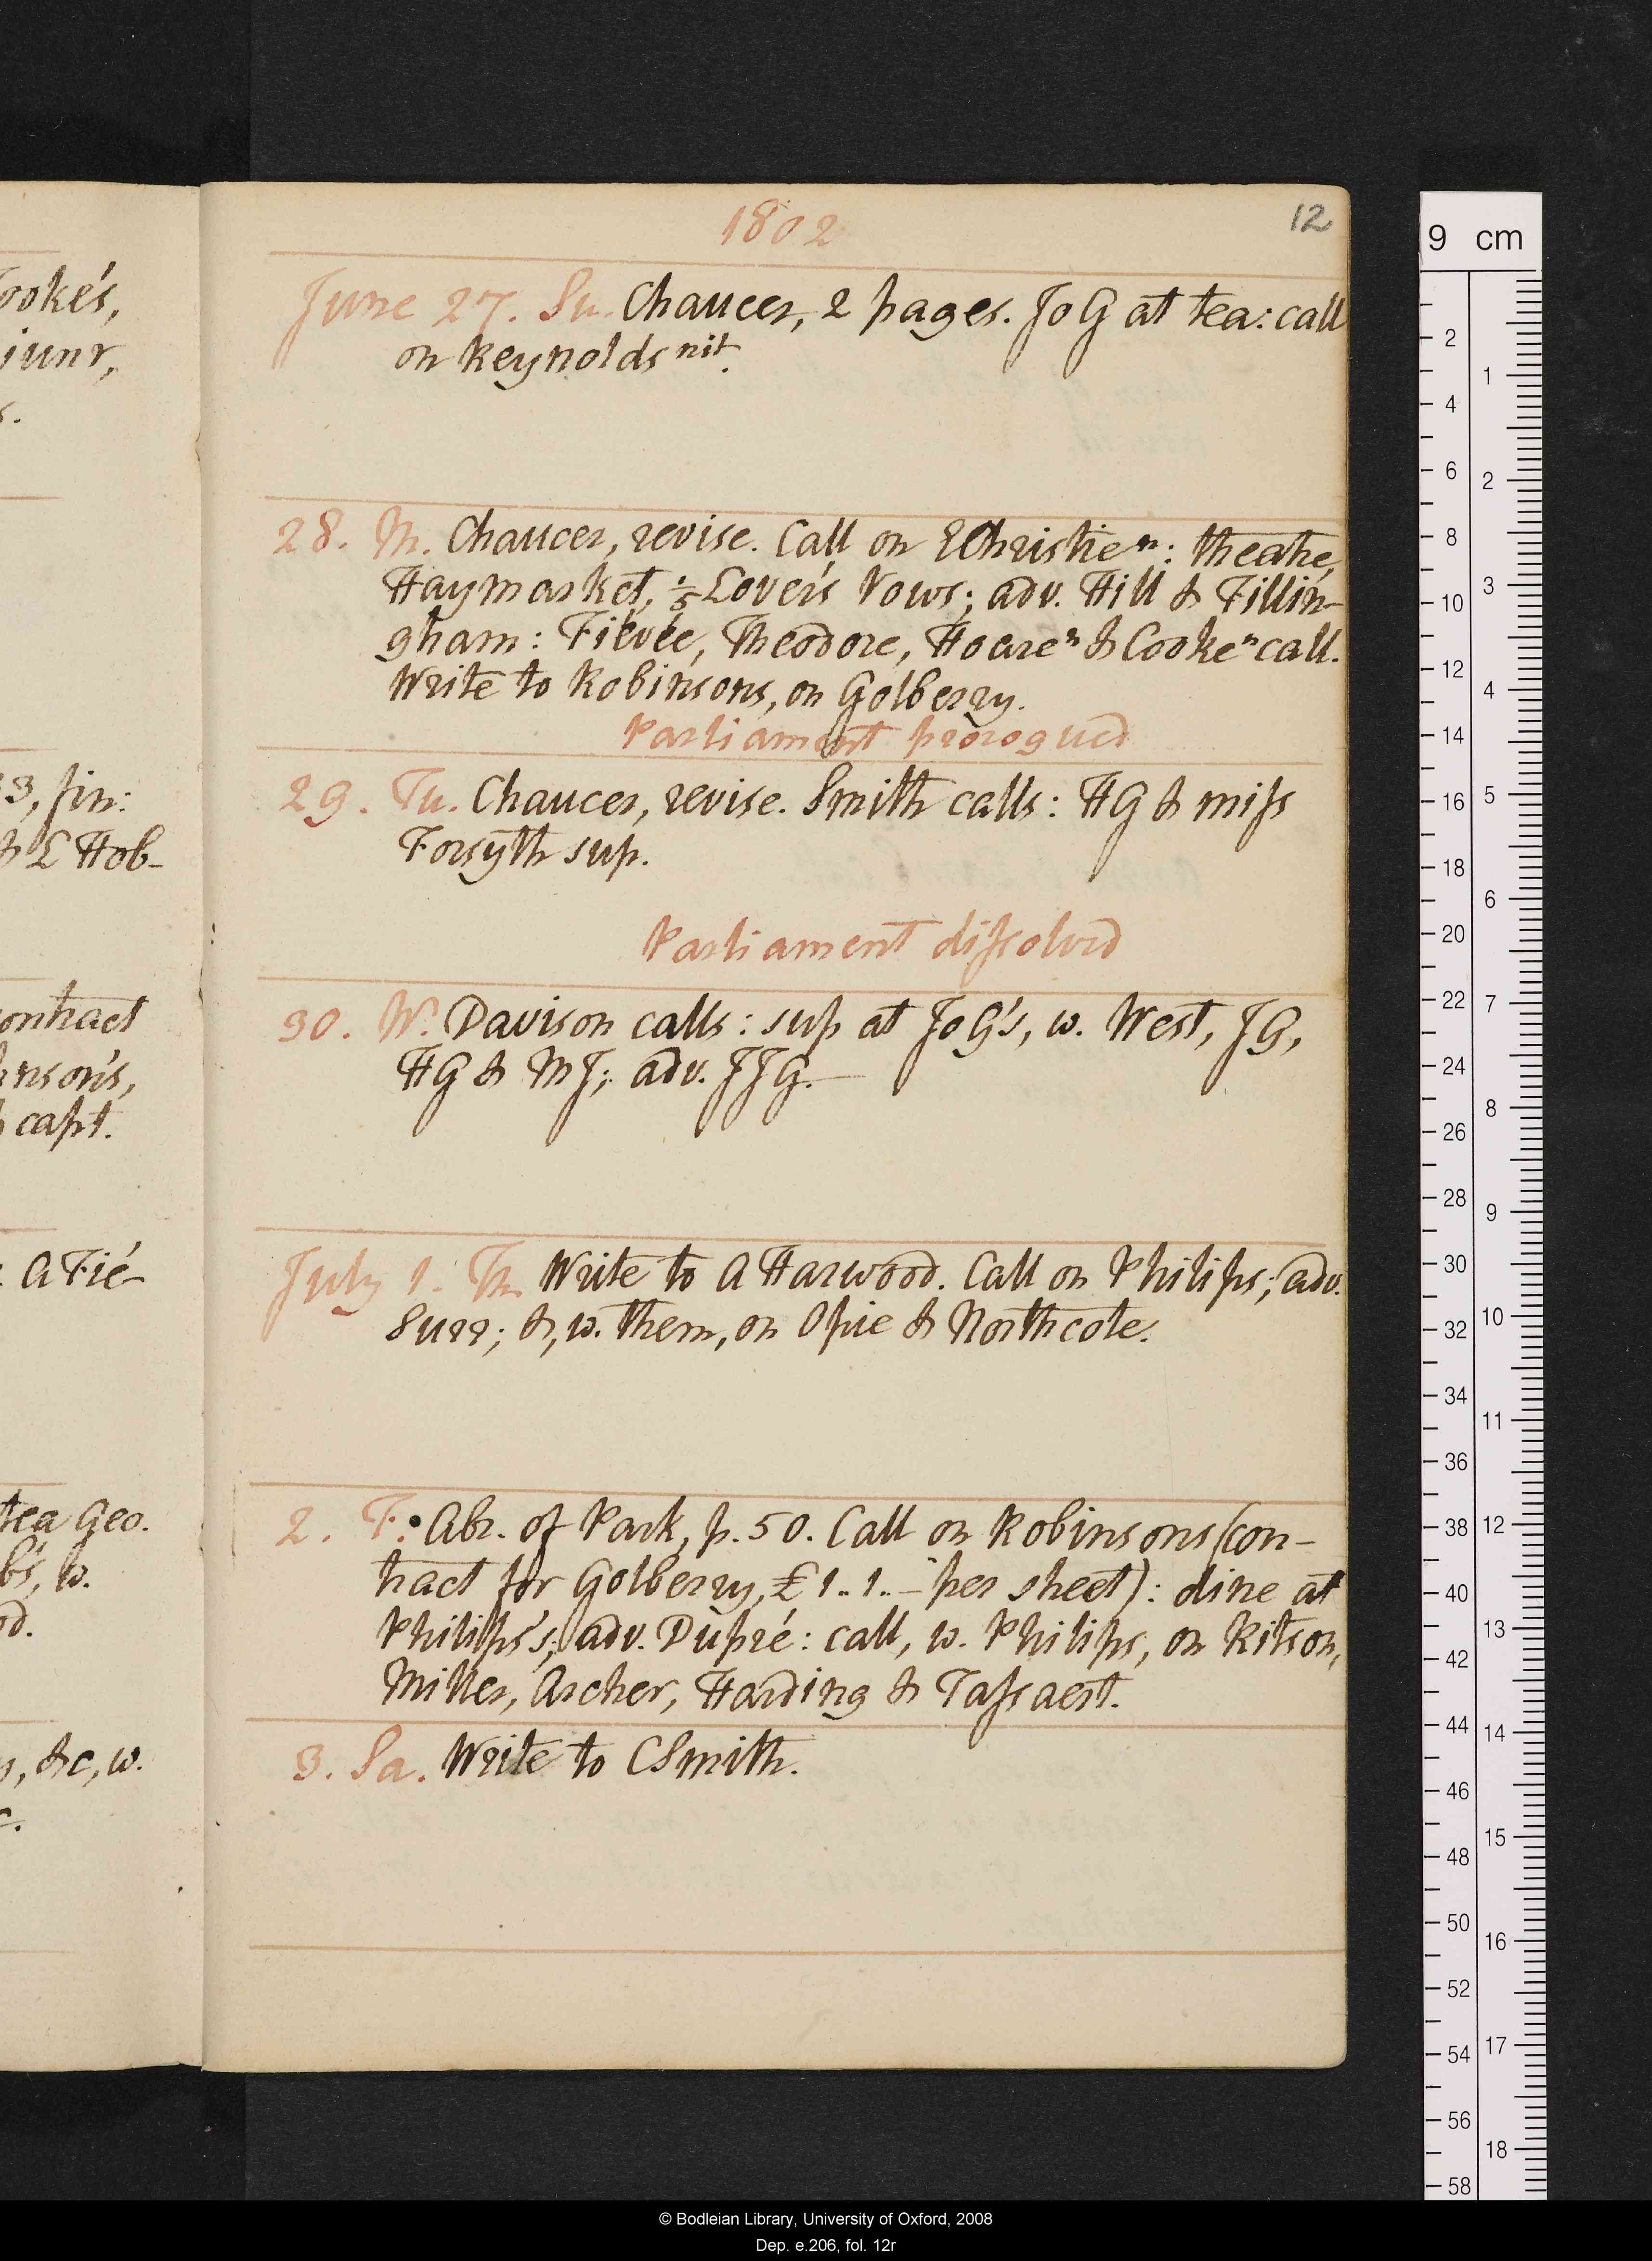 1802
12
June 27. Su. Chaucer, 2 pages. JoG at tea: call
on Reynolds nit.
28. M. Chaucer, revise. Call on EChristie n: theatre,
Haymarket, 1/5 Lover's Vows; adv. Hill & Fillin-
gham: Fiévée, Theodore, Hoare n & Cooke n call.
Write to Robinsons, on Golberry.
Parliament prorogued
29. Tu. Chaucer, revise. Smith calls: HG & miss
Forsyth sup.
Parliament dissolved
30. W. Davison calls: sup at JoG's, w. West, JG,
HG & MJ; adv. JJG.
July 1. Th. Write to A Harwood. Call on Philips; adv.
Surr; &, w. them, on Opie & Northcote.
2. F. Abr. of Park, p. 50. Call on Robinsons (con-
tract for Golberry, £1..1..- per sheet): dine at
Philips's; adv. Dupré: call, w. Philips, on Ritson,
Miller, Archer, Harding & Tassaert.
3. Sa. Write to CSmith.
ooke's,
junr,
s.
3, fin:
& L Hob-
ontract
inson's,
capt.
A Fié-
tea Geo.
b's, w.
od.
, &c, w.
c.
9 cm
2
4
6
8
10
12
14
16
18
20
22
24
26
28
30
32
34
36
38
40
42
44
46
48
50
52
54
56
58
1
2
3
4
5
6
7
8
9
10
11
12
13
14
15
16
17
18
© Bodleian Library, University of Oxford, 2008
Dep. e.206, fol. 12r